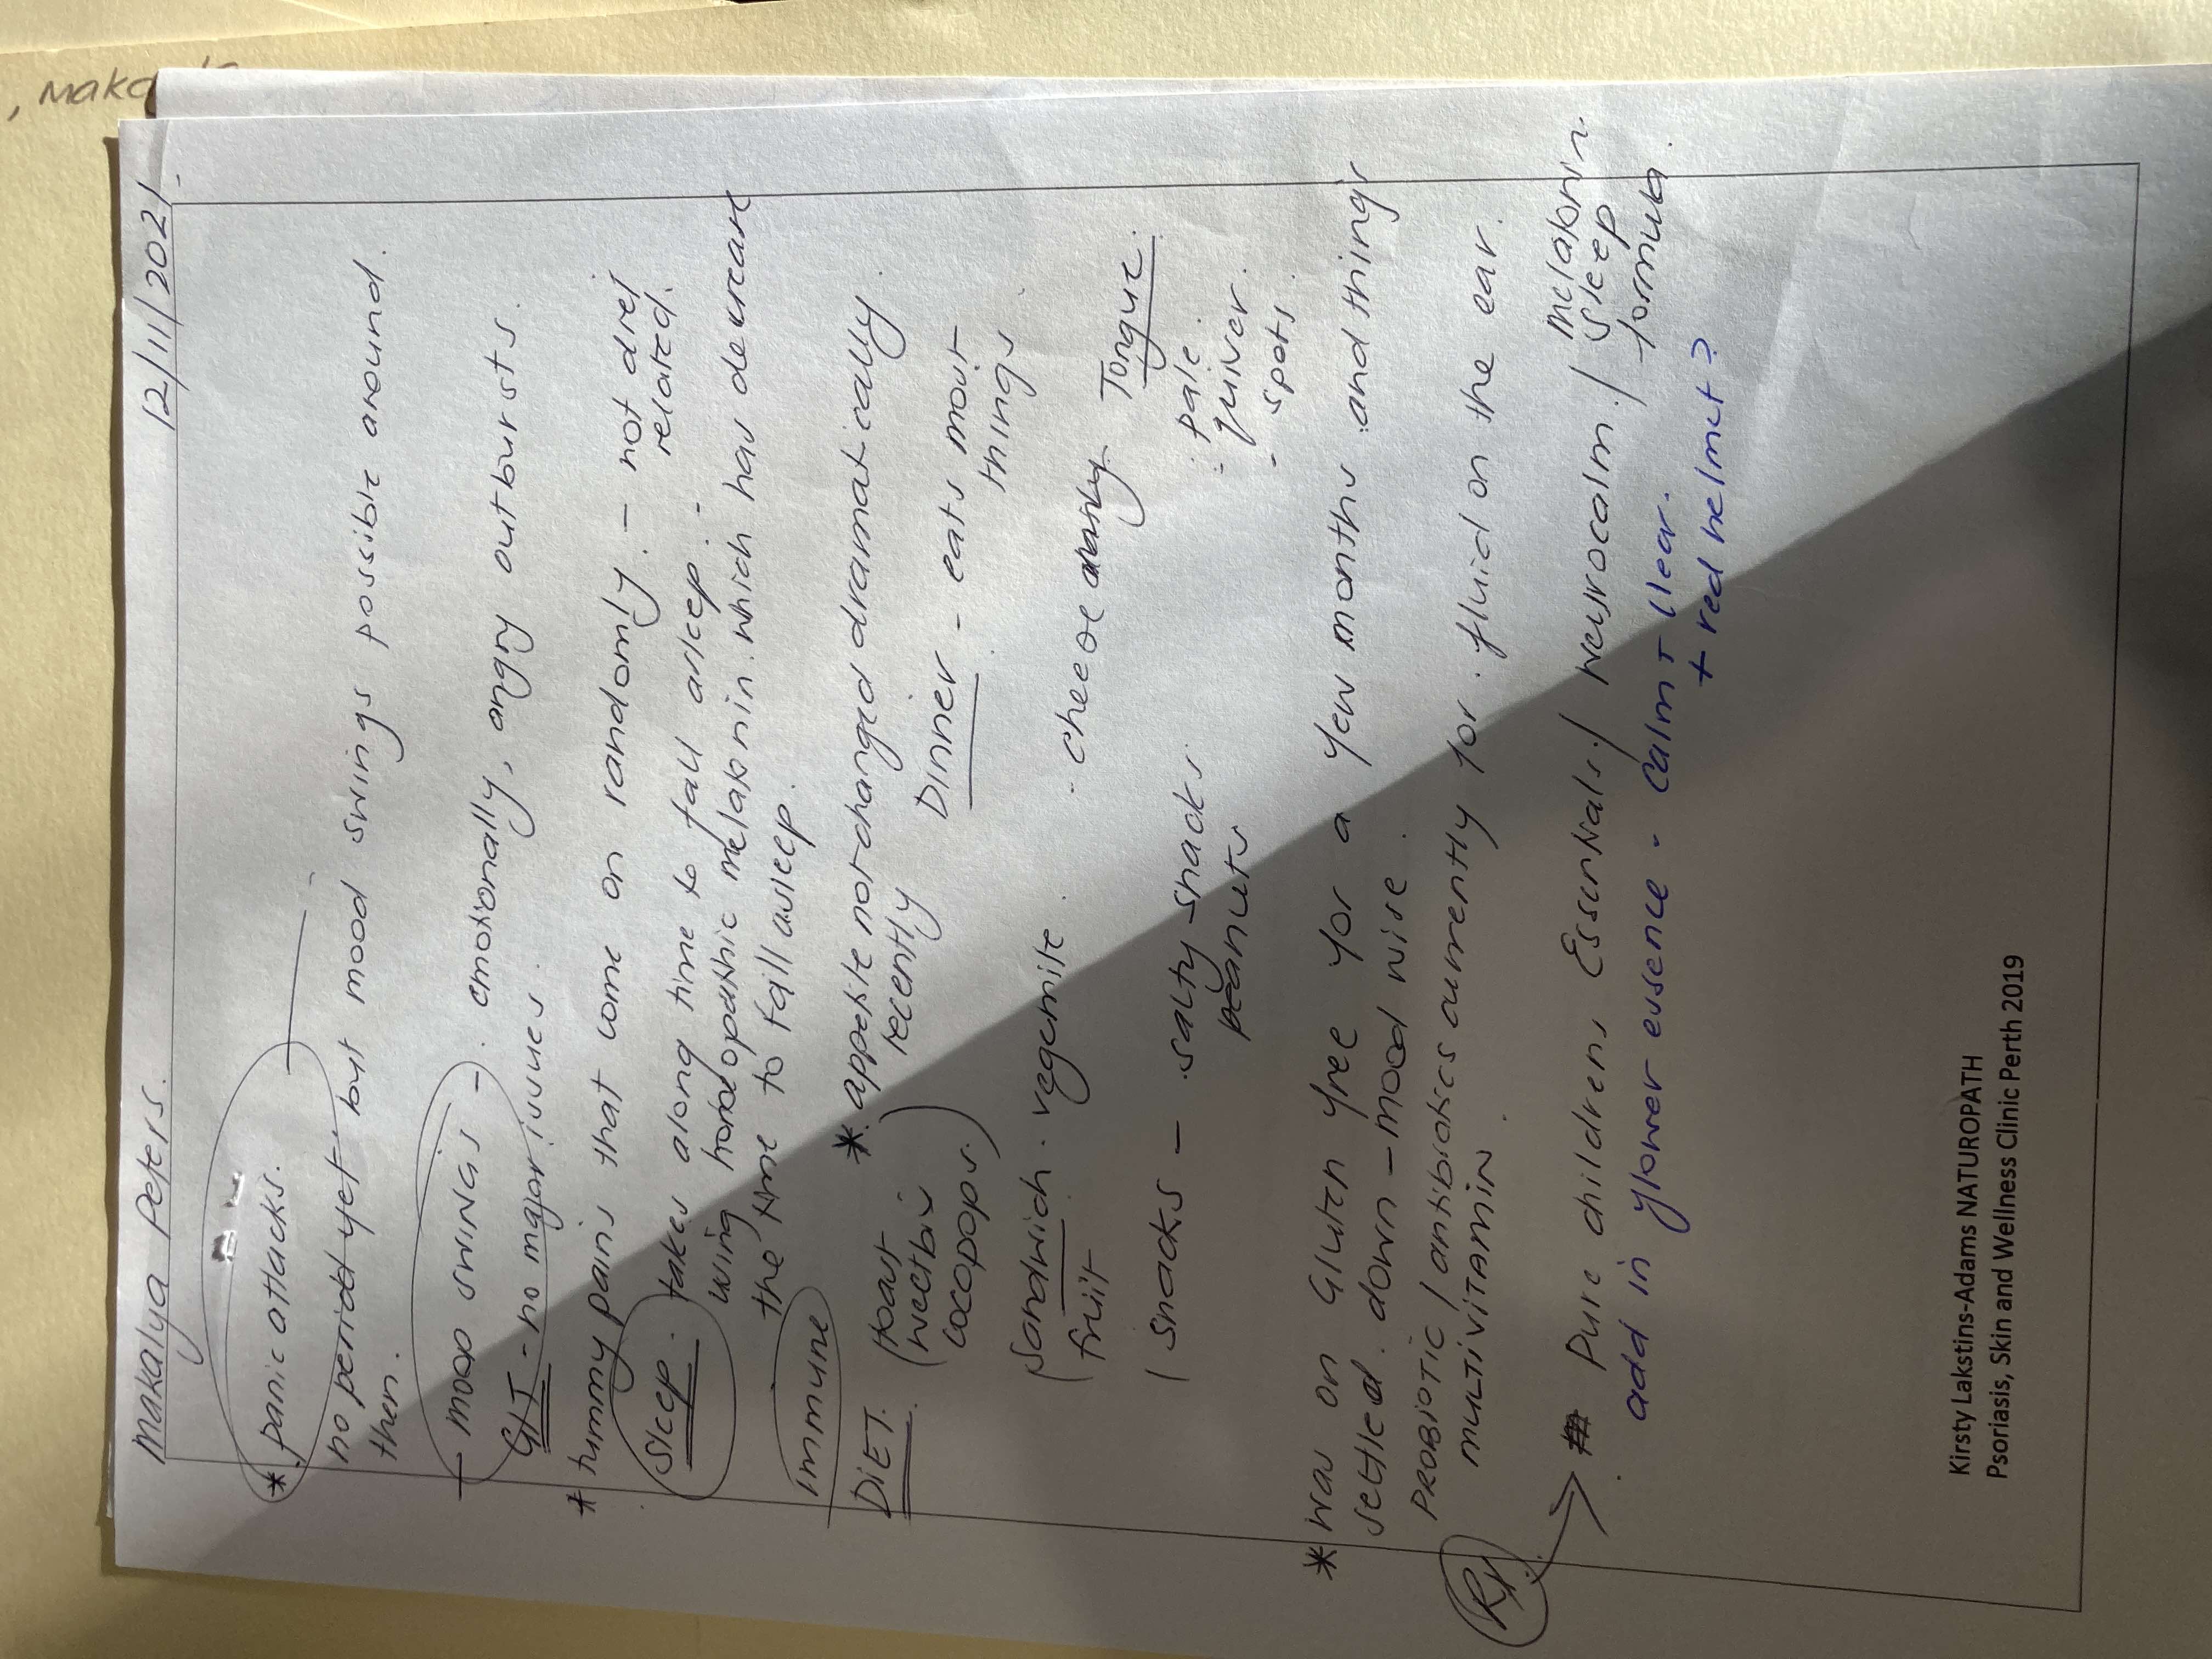 , Maka
Makalya Peters. 12/11/2021
* panic attacks.
no period yet but mood swings possible around
then.
- MOOD SWINGS - emotionally, angry outbursts.
GIT - no major issues.
* tummy pains that come on randomly. - not diet
related.
Sleep. takes along time to fall asleep -
using homeopathic melatonin which has decrease
the time to fall asleep.
immune * appetite not changed dramatically
recently
DIET. (toast
weetbix
cocopops.)
Dinner - eats most
things
(Sandwich. vegemite. - cheese
fruit
Tongue.
- pale.
- quiver.
- spots.
(Snacks - salty-snacks.
peanuts
* was on Gluten free for a few months and things
settled down - mood wise.
PROBIOTIC / antibiotics currently for fluid on the ear.
MULTIVITAMIN.
Rx
Pure childrens Essentials. / Neurocalm. / melatonin.
sleep
formula.
add in flower essence - calm + clear.
+ red helmet?
Kirsty Lakstins-Adams NATUROPATH
Psoriasis, Skin and Wellness Clinic Perth 2019